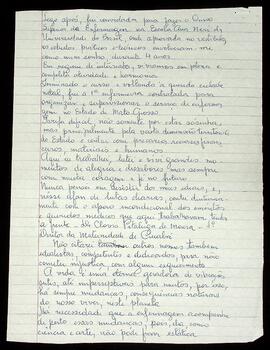 Logo após, fui convidada para fazer o Curso
Superior de Enfermagem na Escola Ana Neri da
Universidade do Brasil, onde aprovada no vestibular,
os estudos práticos e teóricos envolveram-me
como num sonho durante 4 anos.
Em regime de internato, vivíamos em plena e
completa atividade e harmonia.
Terminado o curso e voltando à querida cidade
natal, fui a 1ª enfermeira contratada para
organizar e supervisionar o serviço de enferma-
gem no Estado de Mato Grosso.
Tarefa difícil, não somente por estar sozinha,
mas principalmente pela vasta dimensão territorial
do Estado e contar com precários recursos finan-
ceiros, materiais e humanos.
Aqui eu trabalhei, lutei e vivi grandes mo-
mentos de alegria e dissabores mas sempre
com muita coragem e fé no futuro.
Nunca pensei em desistir dos meus ideais, e,
nesse afan de lutas diárias, contei diutur-
namente com o apoio incondicional dos amigos
e queridos médicos que aqui trabalhavam tendo
à frente - Dr. Clovis Pitaluga de Moura - 1º
Diretor da Maternidade de Cuiabá.
Não citarei outros nomes também
idealistas, competentes e dedicados, para não
cometer injustiça, com algum esquecimento.
A vida é uma eterna geradora de vibrações
sutis, até imperceptíveis para muitos, por isso,
há sempre mudanças, consequências naturais
do nosso viver, neste planeta.
Há necessidade que a enfermagem acompanhe
de perto essas mudanças, pois, ela, como
ciência e arte, não pode ficar estática.